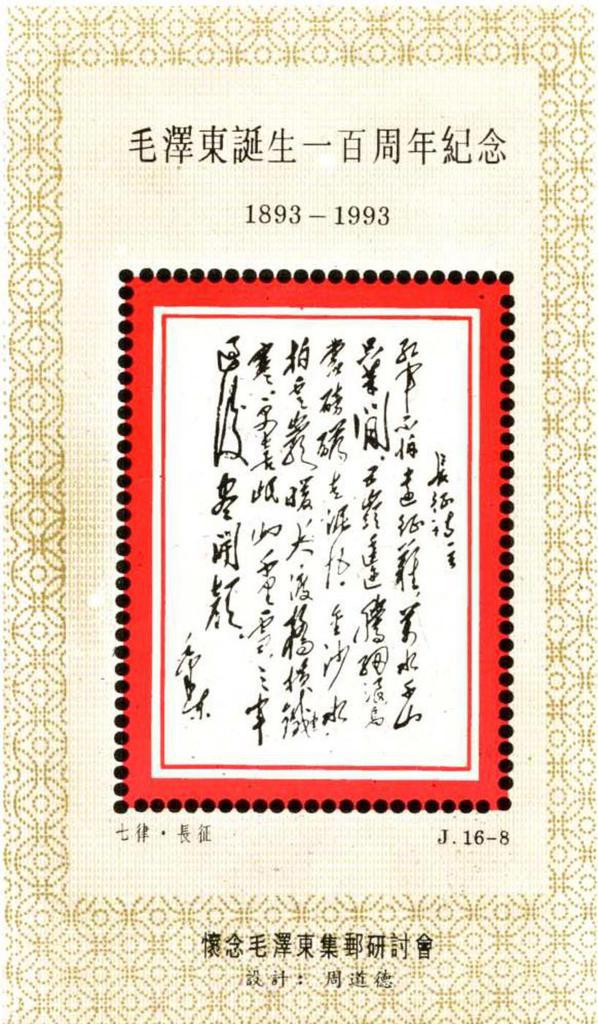 毛澤東誕生一百周年紀念
1893－1993
長征詩一首
紅軍不怕遠征難萬水千山
只等閒五嶺逶迤騰細浪烏
蒙磅礴走泥丸金沙水
拍雲崖暖大渡橋橫鐵索
寒更喜岷山千里雪三軍
過後盡開顏
毛澤東
七律·長征
J.16-8
懷念毛澤東集郵研討會
設計：周道德